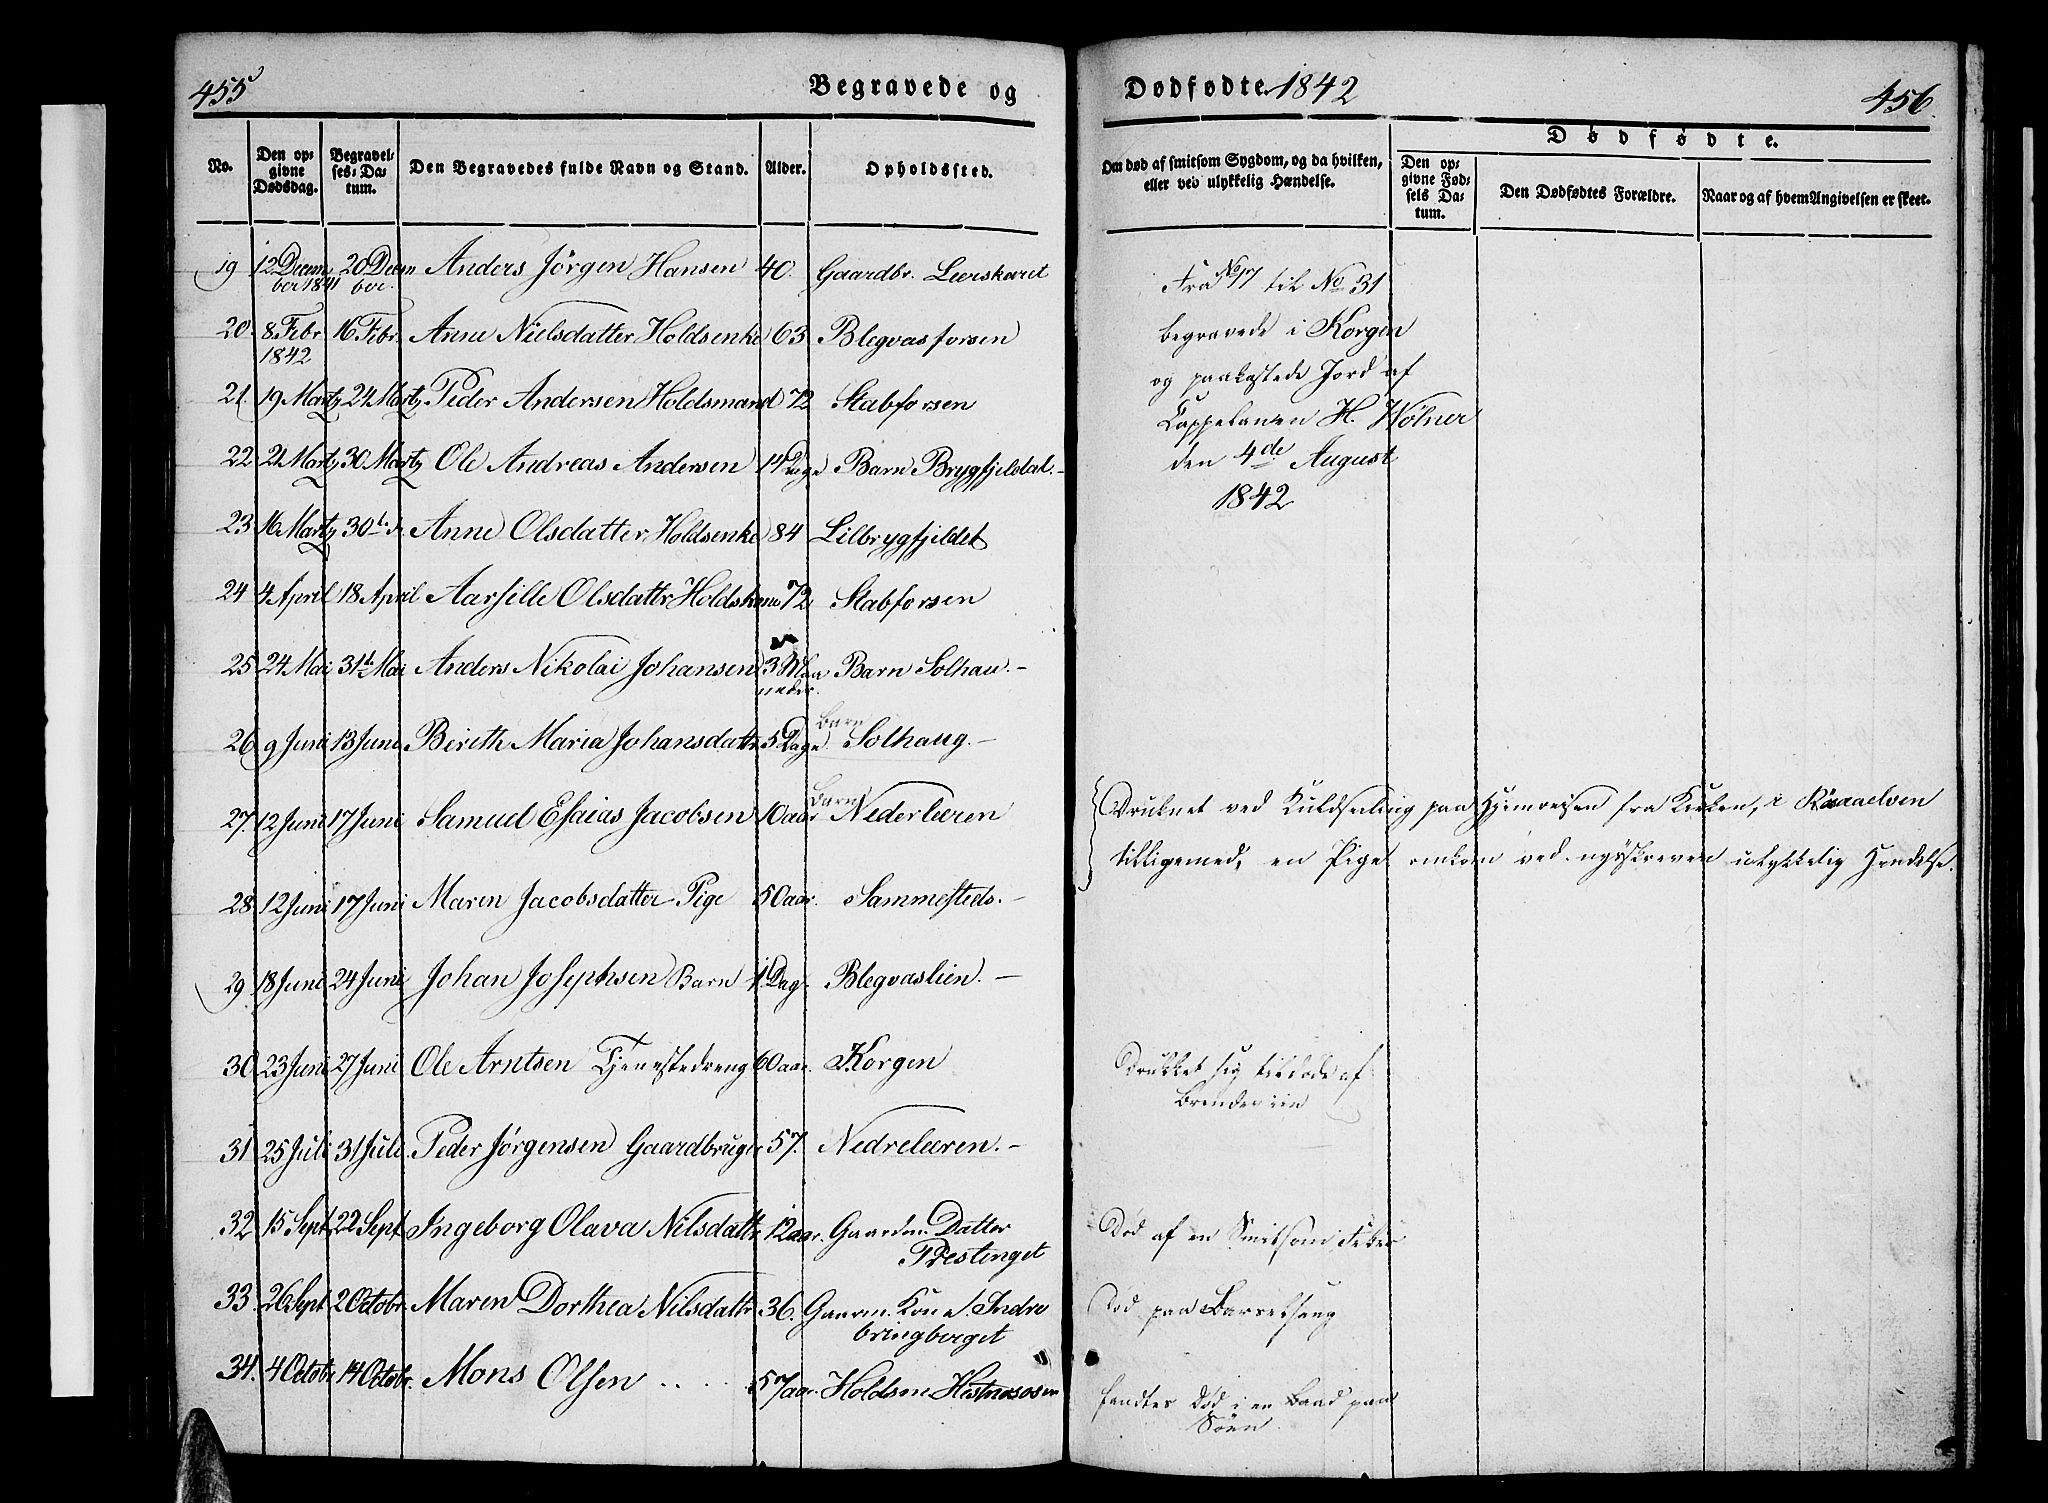 455
Begravede og
Dødfødte 1842
456.
No.
Den op-
givne
Dødsdag.
Begravel-
ses-Da-
tum.
Den Begravedes fulde Navn og Stand.
Alder.
Opholdssted.
Om død af smitsom Sygdom, og da hvilken,
eller ved ulykkelig Hændelse.
Dødfødte.
Den op-
givne Fød-
sels Da-
tum.
Den Dødfødtes Forældre.
Naar og af hvem Angivelsen er skeet.
19 12 Decem 20 Decem Anders Jörgen Hansen 40. Gaardbr. Leerskaret
ber 1841 ber.
20. 8. Febr 16 Febr. Anne Nielsdatter Holdsenke 63 Blegvasforsen
1842
21. 19 Martz 24 Martz Peder Andersen Holdsmand 72 Stabforsen
22 21 Martz 30 Martz Ole Andreas Andersen 14 Dage Barn Brygfjeldal.-
23 16 Martz 30te d. Anne Olsdatter Holdsenke 84 Lilbrygfjeldet
24 4 April 18 April Aarsille Olsdattr Holdskone 72 Stabforsen
25 24 Mai 31te Mai Anders Nikolai Johansen 3 Maa Barn Solhau.-
neder.
26 9 Juni 13 Juni Bereth Maria Johansdattr 5 Dage. Barn Solhaug.-
27. 12 Juni 17 Juni Samuel Esaias Jacobsen 10 aar Barn Nederleeren
28 12 Juni 17 Juni Maren Jacobsdatter Pige 50 aar. Sammesteds.-
29 18 Juni 24 Juni Johan Josephsen Barn 1. Dag. Blegvaslien.-
30 23 Juni 27 Juni Ole Arntsen Tjenestedreng 60 aar. Korgen
31 25 Juli 31 Juli Peder Jörgensen Gaardbruger 57. Nedreleeren.-
32 15 Sept 22 Sept. Ingeborg Olava Nilsdattr 12 aar. Gaardm. Datter
Prestinget
33. 26 Sept 2 Octobr. Maren Dorthea Nilsdattr 36. Gaarm. Kone Indre
bringberget
34. 4 Octobr 14 Octobr. Mons Olsen 57 aar. Holdsm
Fra No 17 til No 31
begravede i Korgen
og paakastede Jord af
Cappelanen H. Wölner
den 4de August
1842
Druknet ved Kuldseiling paa Hjemreisen fra Kirken, i Rösaaelven
tilligemed, en Pige omkom ved nysskreven ulykkelig Hendelse.
Drukket sig tildöde af
Brendeviin
Död af en Smitsom Feber
Död paa Barselseng
fandtes död i en Baad paa
Söen.